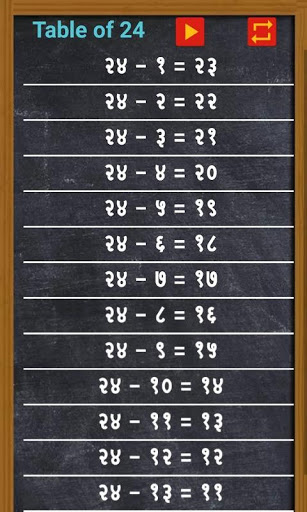 Table of 24
२४ – १ = २३
२४ – २ = २२
२४ – ३ = २१
२४ – ४ = २०
२४ – ५ = १९
२४ – ६ = १८
२४ – ७ = १७
२४ – ८ = १६
२४ – ९ = १५
२४ – १० = १४
२४ – ११ = १३
२४ – १२ = १२
२४ – १३ = ११